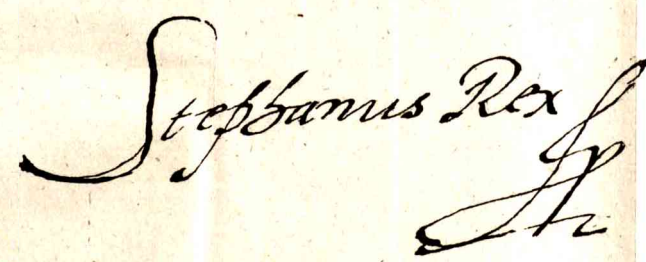 Stephanus Rex